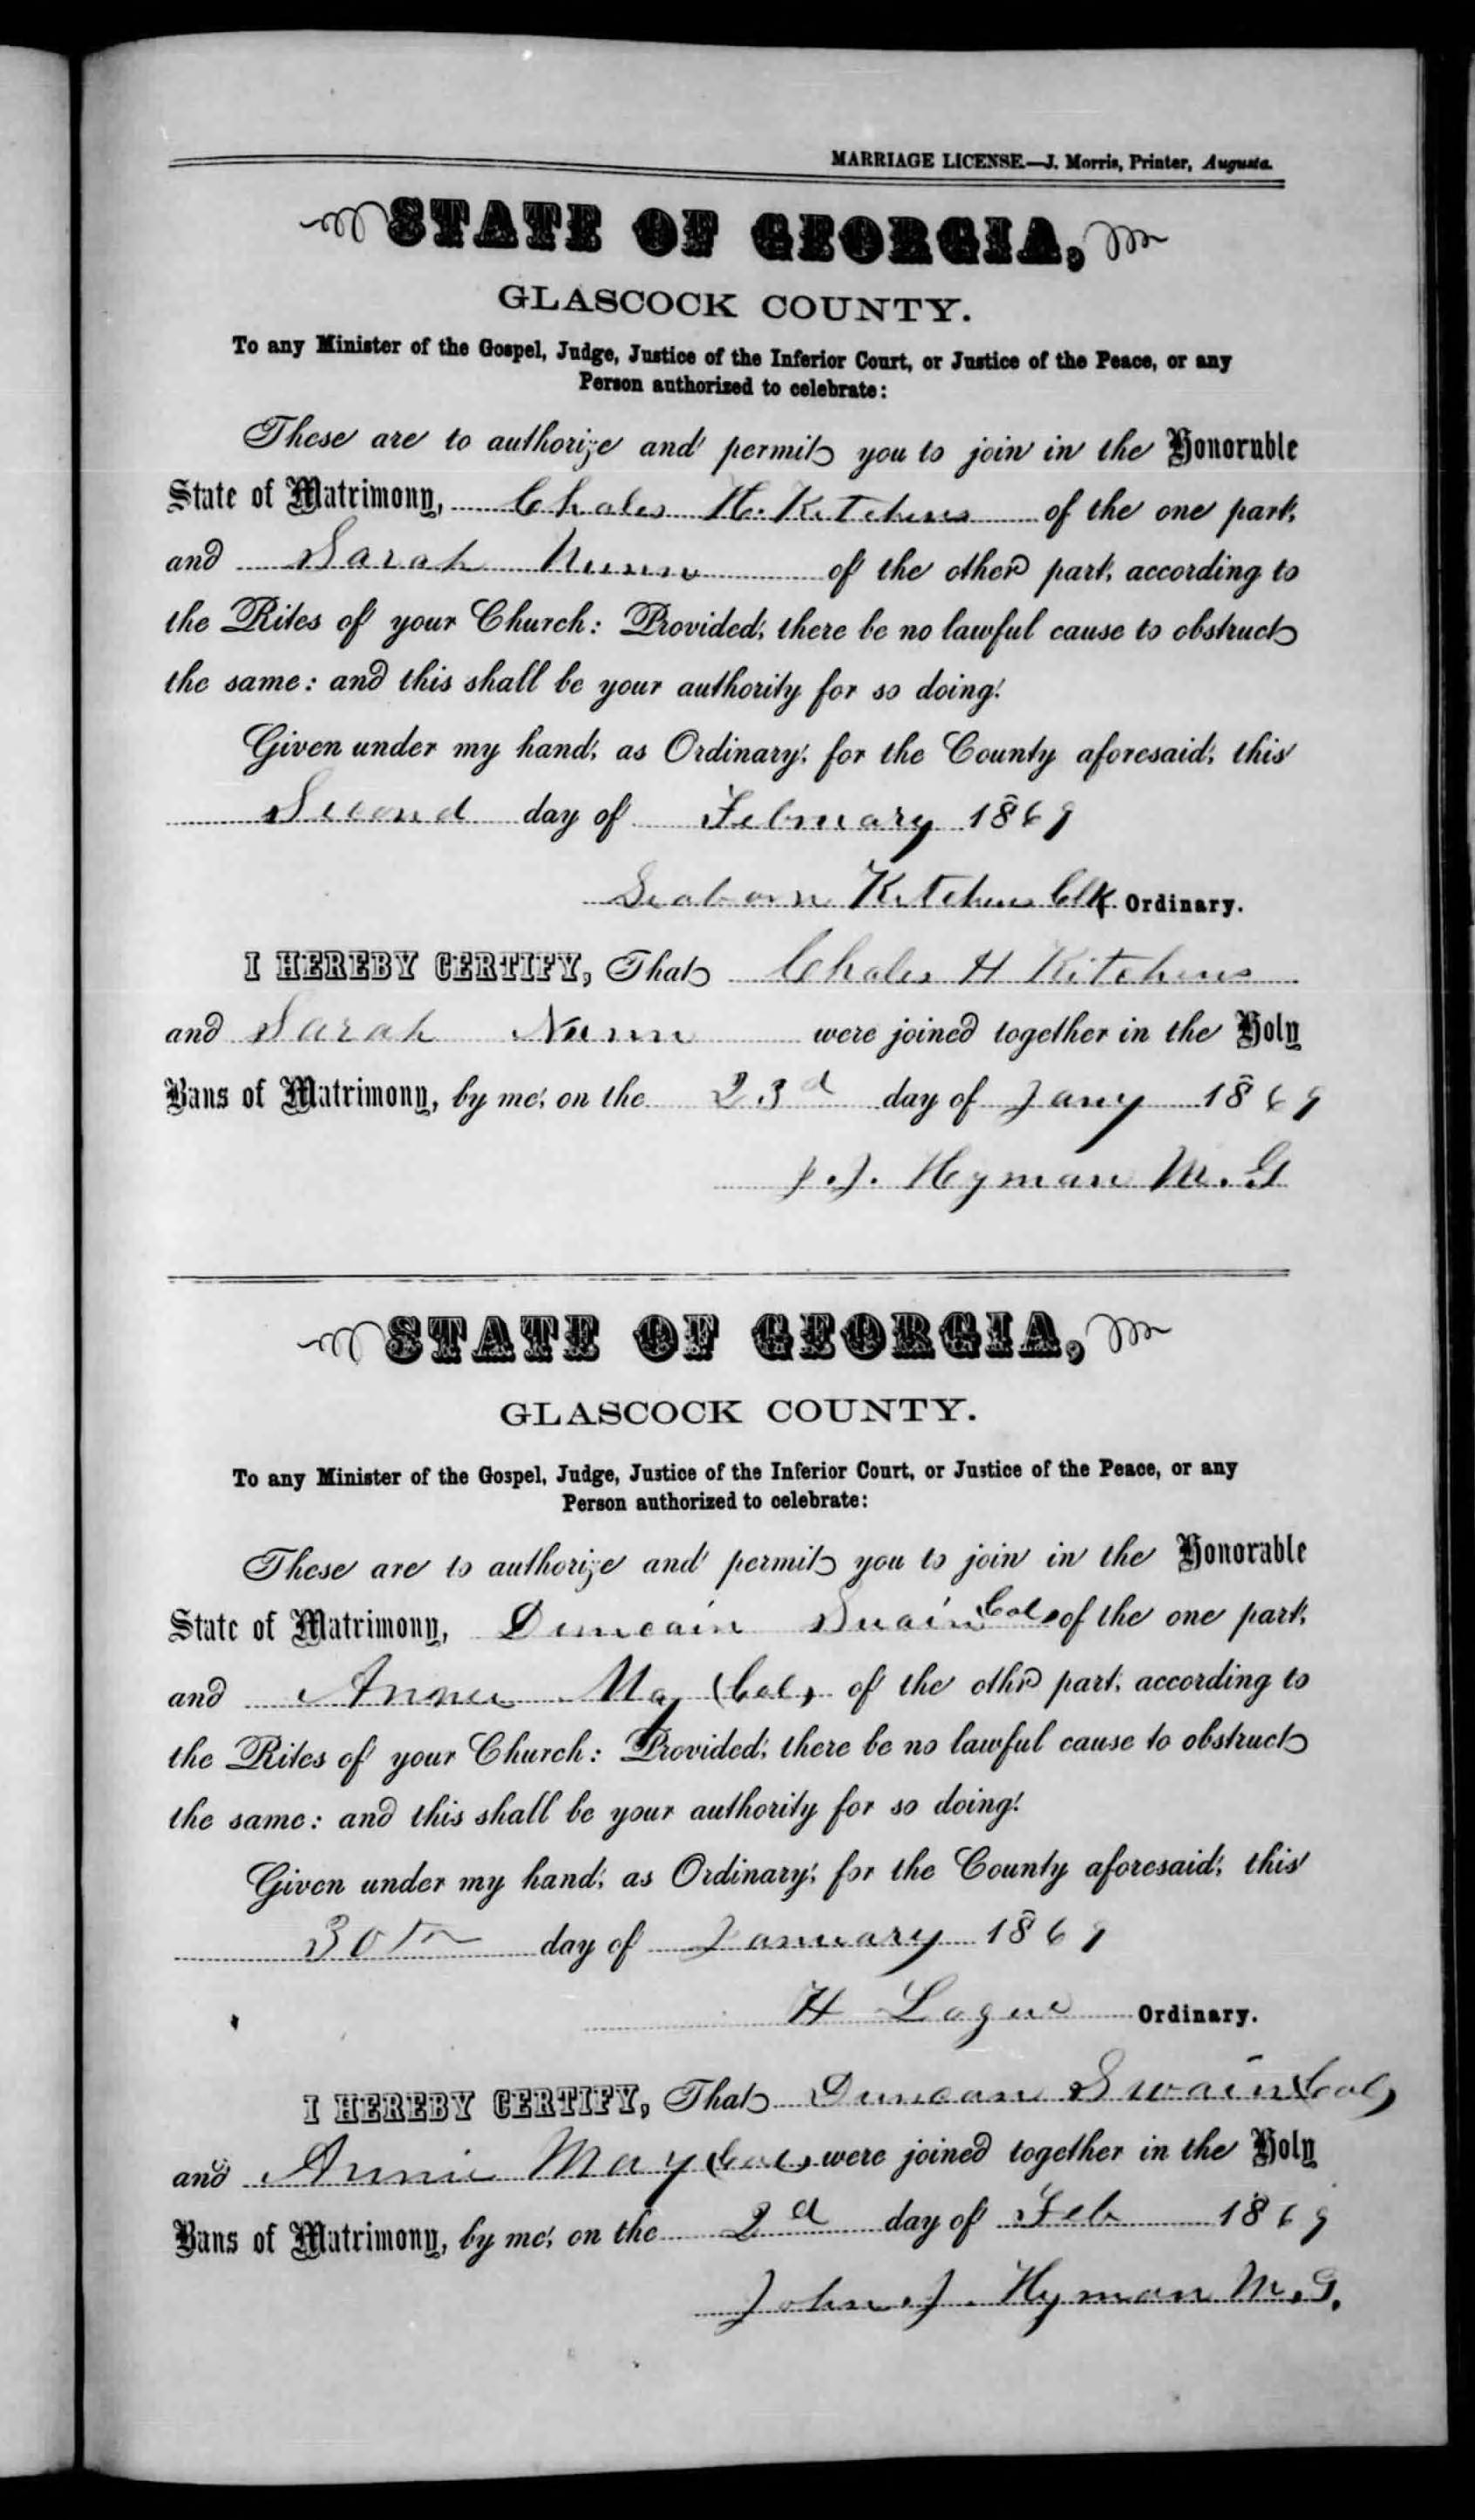 MARRIAGE LICENSE.—J. Morris, Printer, Augusta.
STATE OF GEORGIA,
GLASCOCK COUNTY.
To any Minister of the Gospel, Judge, Justice of the Inferior Court, or Justice of the Peace, or any
Person authorized to celebrate:
These are to authorize and permit you to join in the Honoruble
State of Matrimony, Chales H. Kitchens of the one part,
and Sarah Nunn of the other part, according to
the Rites of your Church: Provided, there be no lawful cause to obstruct
the same: and this shall be your authority for so doing.
Given under my hand, as Ordinary, for the County aforesaid, this
Second day of February 1869
Seaborn Kitchens Clk Ordinary.
I HEREBY CERTIFY, That Chales H Kitchens
and Sarah Nunn were joined together in the Holy
Bans of Matrimony, by me, on the 23d day of Jany 1869
J. J. Hyman M. G
STATE OF GEORGIA,
GLASCOCK COUNTY.
To any Minister of the Gospel, Judge, Justice of the Inferior Court, or Justice of the Peace, or any
Person authorized to celebrate:
These are to authorize and permit you to join in the Honorable
State of Matrimony, Duncain Swain Col. of the one part,
and Annie May (Col) of the othr part, according to
the Rites of your Church: Provided, there be no lawful cause to obstruct
the same: and this shall be your authority for so doing.
Given under my hand, as Ordinary, for the County aforesaid, this
30th day of January 1869
H Logue Ordinary.
I HEREBY CERTIFY, That Duncan Swain (Col)
and Annie May (Col) were joined together in the Holy
Bans of Matrimony, by me, on the 2d day of Feb 1869
John. J. Hyman M. G.